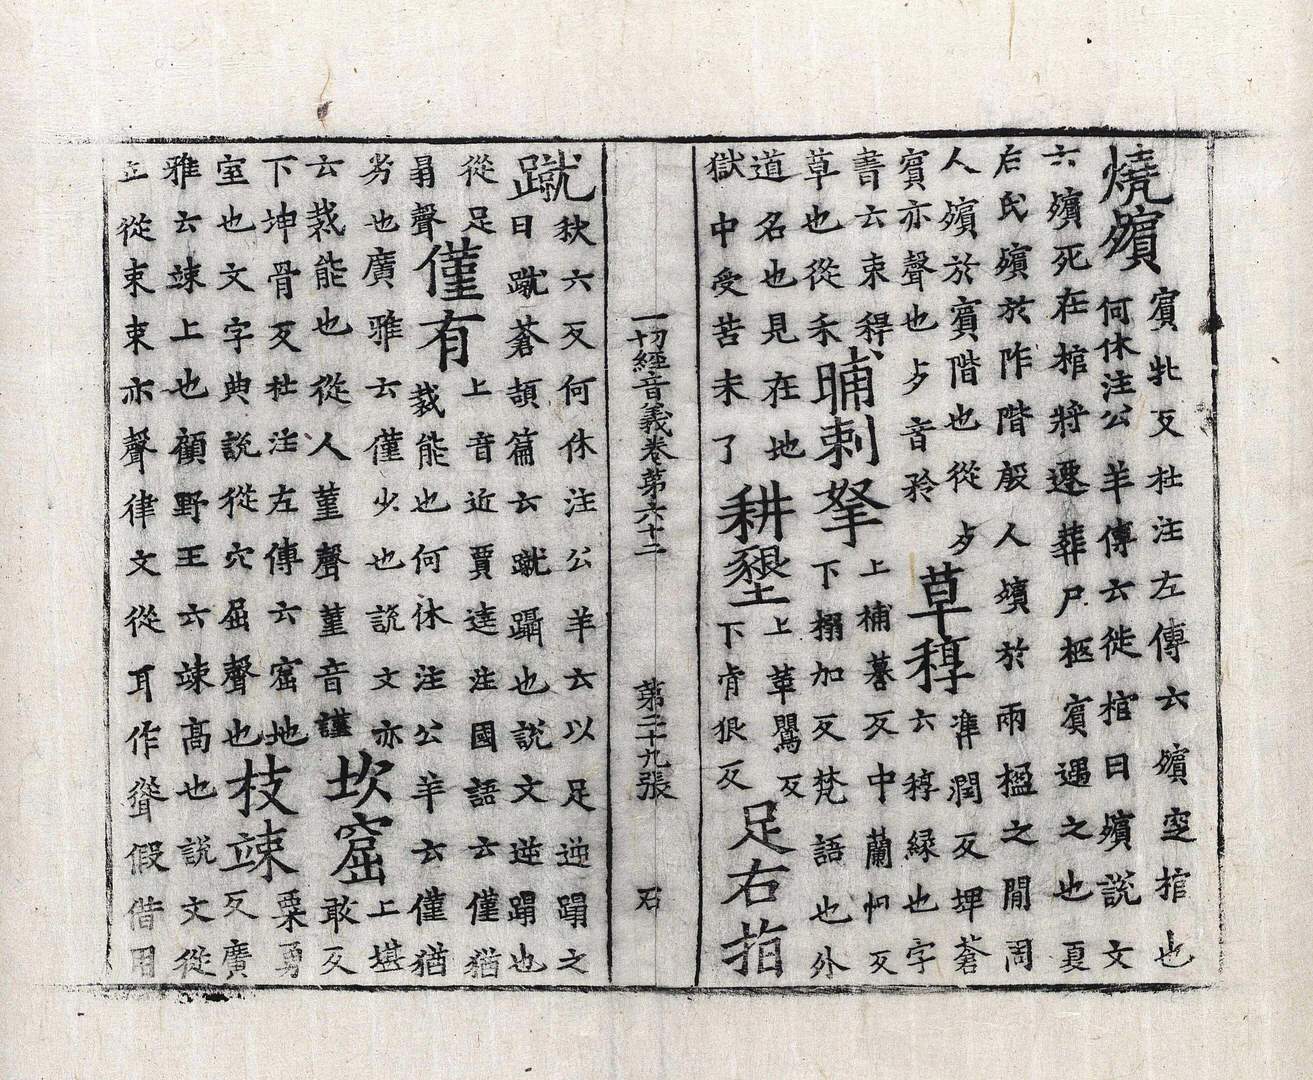 燒殯
賓牝反杜注左傳云殯窆棺也
何休注公羊傳云徙棺曰殯說文
云殯死在棺將遷葬尸柩賓遇之也夏
后氏殯於阼階殷人殯於兩楹之間周
人殯於賓階也從歹
賓亦聲也歹音矜
草稕
準潤反埤蒼
云稕緣也字
書云束稈
草也從禾
晡剌拏
上補暮反中蘭怛反
下搦加反梵語也外
道名也見在地
獄中受苦未了
耕墾
上革鸎反
下肯狠反
足右指
一切經音義卷第六十二　第二十九張　石
蹴
秋六反何休注公羊云以足逆蹋之
曰蹴蒼頡篇云蹴躡也說文逆蹋也
從足
𦐇聲
僅有
上音近賈逵注國語云僅猶
裁能也何休注公羊云僅猶
劣也廣雅云僅少也說文亦
云裁能也從人堇聲堇音謹
坎窟
上堪
敢反
下坤骨反杜注左傳云窟地
室也文字典說從穴屈聲也
枝竦
粟勇
反廣
雅云竦上也顧野王云竦高也說文從
立從束束亦聲律文從耳作聳假借用